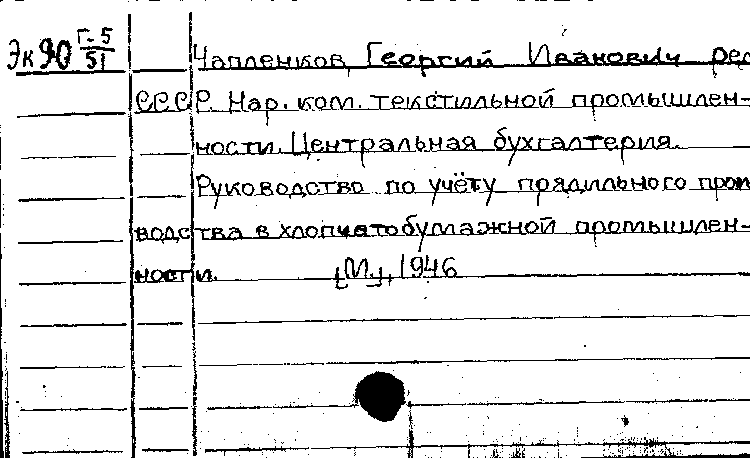 Эк90 Г-5/51
Чапленков, Георгий Иванович ред
СССР. Нар. ком. текстильной промышлен-
ности. Центральная бухгалтерия.
Руководство по учёту прядильного прои
водства в хлопчатобумажной промышлен-
ности. [М.], 1946